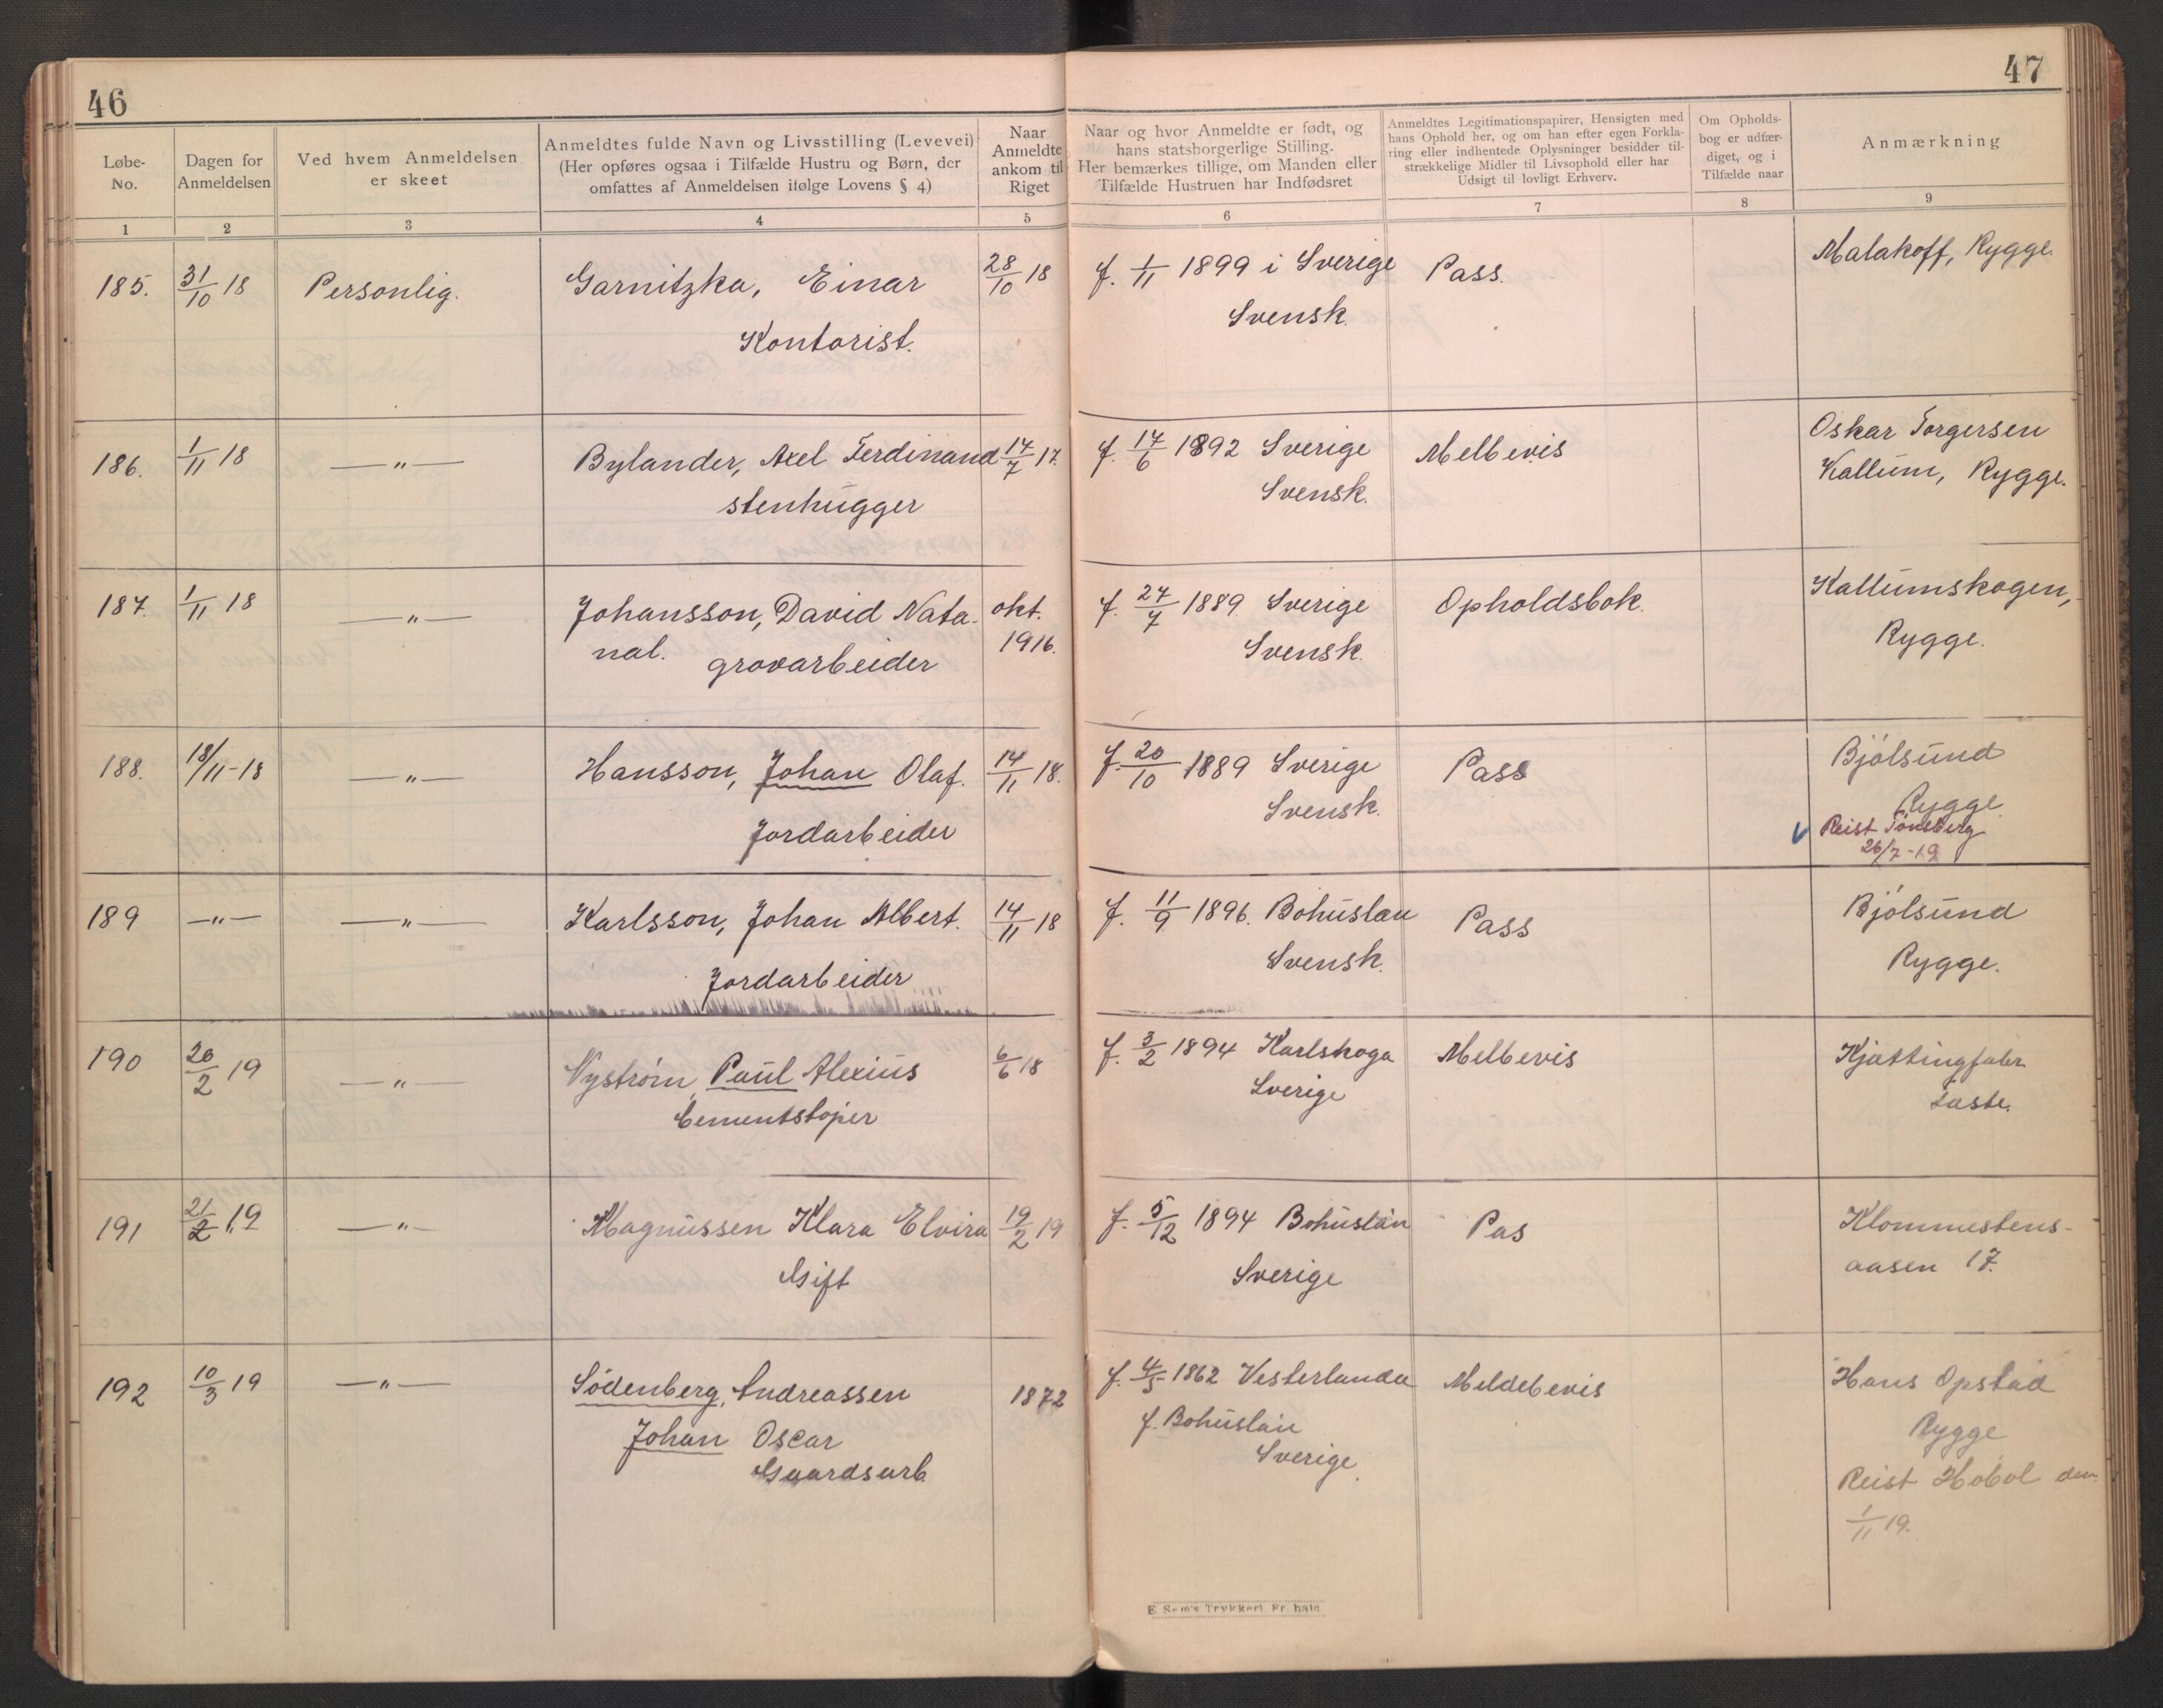 46
47
Løbe-
No.
Dagen for
Anmeldelsen
Ved hvem Anmeldelsen
er skeet
Anmeldtes fulde Navn og Livsstilling (Levevei)
(Her opføres ogsaa i Tilfælde Hustru og Børn, der
omfattes af Anmeldelsen ifølge Lovens § 4)
Naar
Anmeldte
ankom til
Riget
Naar og hvor Anmeldte er født, og
hans statsborgerlige Stilling.
Her bemærkes tillige, om Manden eller
Tilfælde Hustruen har Indfødsret
Anmeldtes Legitimationspapirer, Hensigten med
hans Ophold her, og om han efter egen Forkla-
ring eller indhentede Oplysninger besidder til-
strækkelige Midler til Livsophold eller har
Udsigt til lovligt Erhverv.
Om Opholds-
bog er udfær-
diget, og i
Tilfælde naar
Anmærkning
1 2 3 4 5 6 7 8 9
185. 31/10 18 Personlig. Garnitzka, Einar 28/10 18 f. 1/11 1899 i Sverige Pass. Malakoff, Rygge.
Kontorist. Svensk.
186. 1/11 18 —"— Bylander, Axel Ferdinand 17/7 17. f. 17/6 1892 Sverige Melbevis Oskar Torgersen
stenhugger Svensk. Kallum, Rygge.
187. 1/11 18 —"— Johansson, David Nata- okt. f. 27/7 1889 Sverige Opholdsbok. Kallumskogen,
nal. gravarbeider 1916. Svensk. Rygge.
188. 18/11-18 —"— Hansson, Johan Olaf. 14/11 18. f. 20/10 1889 Sverige Pass Bjölsund
Jordarbeider Svensk. Rygge
Reist Tönsberg
26/7-19
189 —"— —"— Karlsson, Johan Albert. 14/11 18 f. 11/9 1896. Bohuslän Pass Bjölsund
Jordarbeider Svensk. Rygge.
190 20/2 19 —"— Nyström, Paul Alexius 6/6 18 f. 3/2 1894 Karlskoga Melbevis Kjættingfabr.
Cementstøper Sverige
191 21/2 19 —"— Magnussen Klara Elvira 19/2 19 f. 5/12 1894 Bohuslän Pas Klommestens-
Gift Sverige aasen 17.
192 10/3 19 —"— Södenberg, Andreassen 1872 f. 4/5 1862 Vesterlanda Meldebevis Hans Opstad
Johan Oscar f. Bohuslän Rygge
Gaardsarb. Sverige Reist Hobøl den
1/11 19.
E. Sem's Trykkeri, Fr.hald